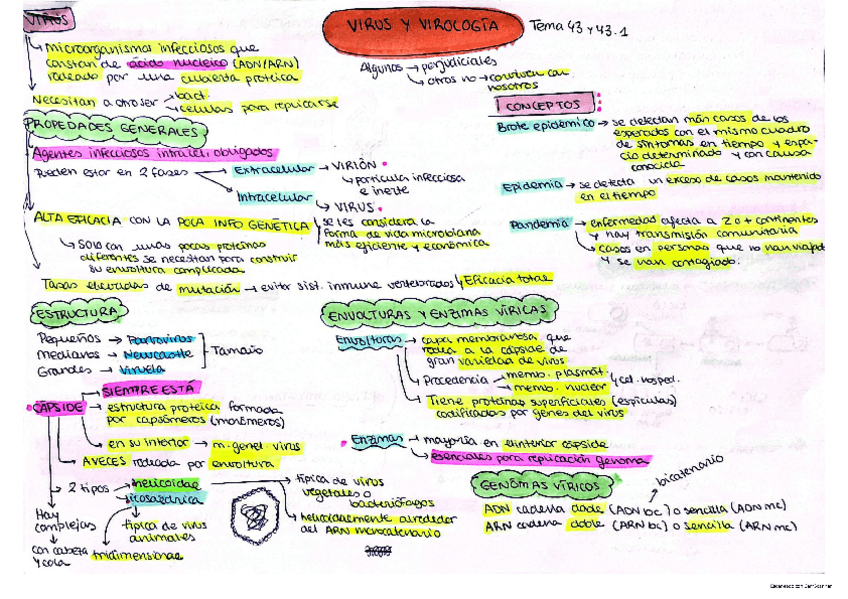 VIRUS
VIRUS Y VIROLOGÍA
Tema 43 y 43.1
Microorganismos infecciosos que
constan de ácido nucleico (ADN/ARN)
rodeado por una cubierta proteica
Necesitan a otro ser → bact.
→ células para replicarse
Algunos → perjudiciales
→ otros no → conviven con
nosotros
CONCEPTOS
Brote epidémico → se detectan más casos de los
esperados con el mismo cuadro
de síntomas en tiempo y espa-
cio determinado y con causa
conocida
Epidemia → se detecta un exceso de casos mantenido
en el tiempo
Pandemia → enfermedad afecta a 2 o + continentes
y hay transmisión comunitaria
→ casos en personas que no han viajado
y se han contagiado.
PROPIEDADES GENERALES
Agentes infecciosos intracel. obligados
Pueden estar en 2 fases → Extracelular → VIRIÓN
→ partícula infecciosa
e inerte
→ Intracelular → VIRUS
ALTA EFICACIA CON LA POCA INFO GENÉTICA
se les considera la
forma de vida microbiana
más eficiente y económica
→ Solo con unas pocas proteínas
diferentes se necesitan para construir
su envoltura complicada
Tasas elevadas de mutación → evitar sist. inmune vertebrados y Eficacia total
ESTRUCTURA
Pequeños → Parvovirus
Medianos → Newcastle
Grandes → Viruela
Tamaño
CÁPSIDE → SIEMPRE ESTÁ
→ estructura proteica formada
por capsómeros (monómeros)
→ en su interior → m. genet virus
→ A VECES rodeada por envoltura
→ 2 tipos → helicoidal
→ icosaédrica
típica de virus
vegetales o
bacteriófagos
helicoidalmente alrededor
del ARN monocatenario
típica de virus
animales
tridimensional
Hay
complejas
con cabeza
y cola
ENVOLTURAS Y ENZIMAS VÍRICAS
Envolturas → capa membranosa que
rodea a la cápside de
gran variedad de virus
→ Procedencia → memb. plasmát
→ memb. nuclear
cél. hosped.
→ Tiene proteínas superficiales (espículas)
codificadas por genes del virus
Enzimas → mayoría en el interior cápside
→ esenciales para replicación genoma
GENÓMAS VÍRICOS
bicatenario
ADN cadena doble (ADN bc) o sencilla (ADN mc)
ARN cadena doble (ARN bc) o sencilla (ARN mc)
Escaneado con CamScanner